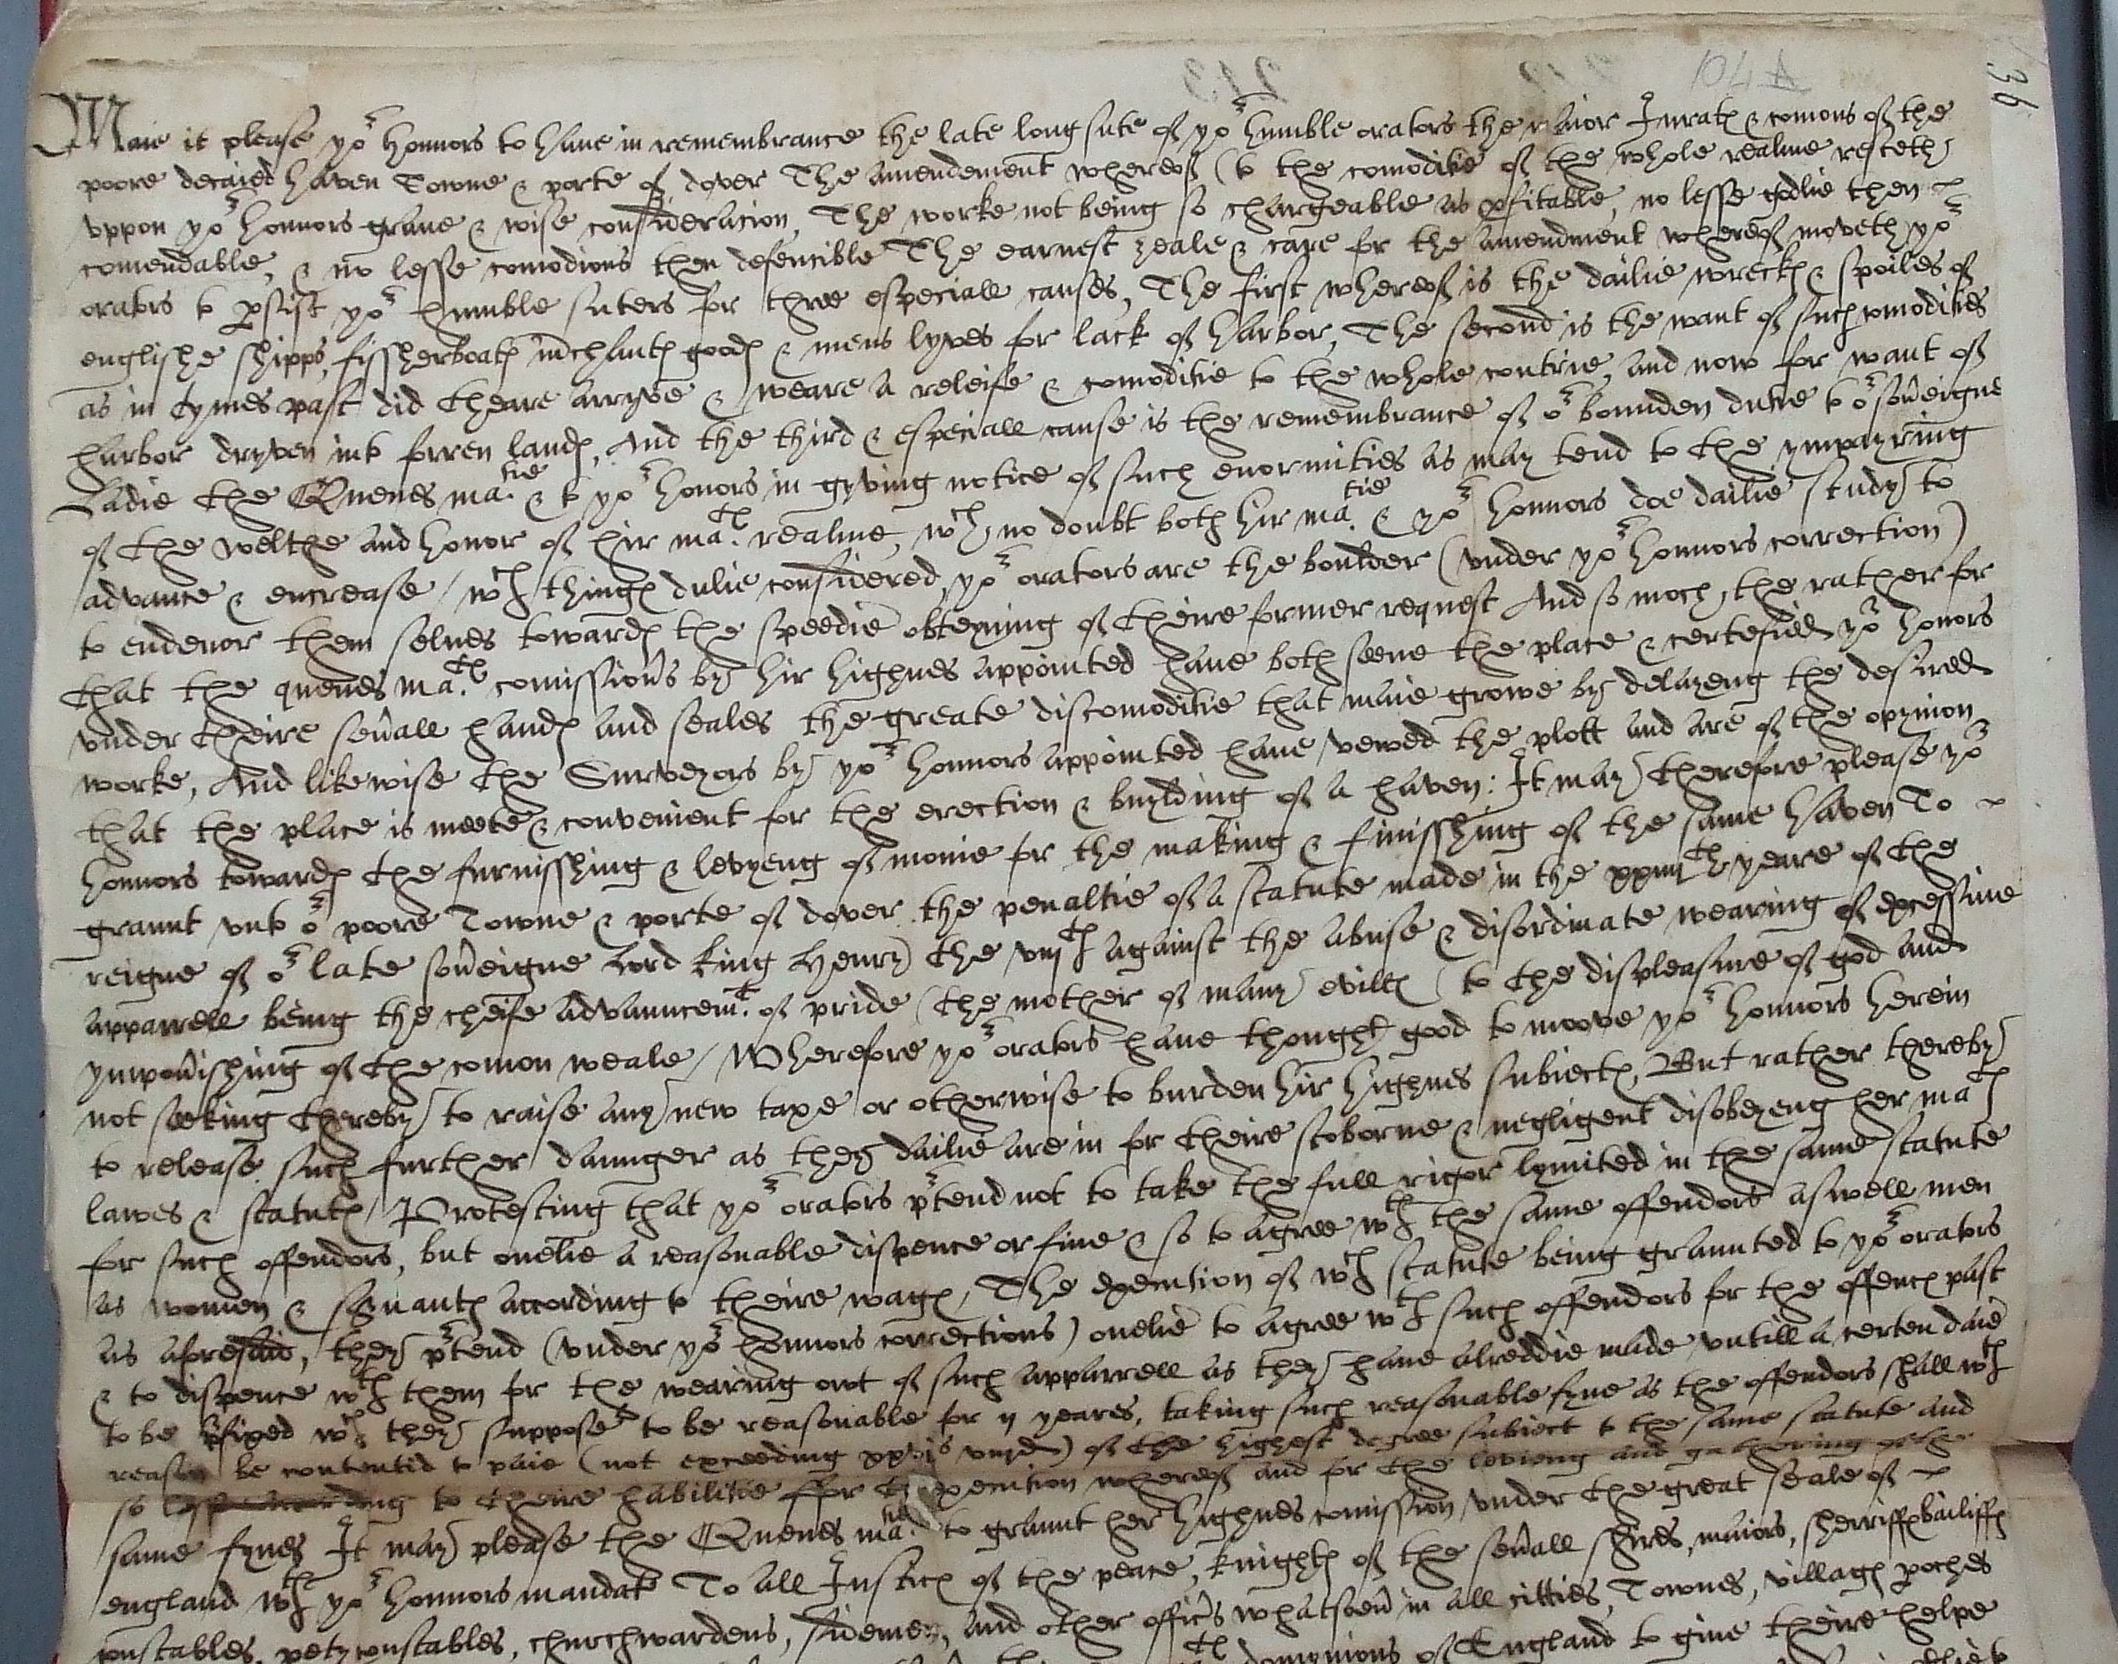 104 A
36
213
Maie it please yor honnors to haue in remembrance the late long sute of yor humble orators the maior Iurates & comons of the
poore decaied haven Towne & porte of dover The amendement whereof (to the comoditie of the whole realme resteth)
vppon yor honnors graue & wise consideracion, The worke not being so chargeable as pfitable, no lesse godlie then
comendable, & no lesse comodious then defencible The earnest zeale & care for the amendment whereof moveth yor
orators to psist yor humble suters for three especiall causes, The first whereof is the dailie wreckes & spoiles of
englishe shipps, fissherboates mchantes goodes & mens lyves for lack of harbor, The second is the want of such comodities
as in tymes past did theare arryve & weare a releife & comoditie to the whole contrie, and now for want of
harbor dryven into forren landes, And the third & especiall cause is the remembrance of or bounden dutie to or soveigne
Ladie the Quenes matie & to yor honors in gyving notice of such enormities as may tend to the ympayring
of the welthe and honor of hir mates realme, wch no doubt both hir matie & yor honnors doe dailie study to
advance & encrease / wch thinges dulie considered, yor orators are the boulder (vnder yor honnors correction)
to endevor them selues towardes the speedie obteyning of theire former request And so moch the rather for
that the quenes mates comissions by hir highnes appointed haue both seene the place & certefied yor honors
vnder theire seuall handes and seales the greate discomoditie that maie growe by delayeng the desired
worke, And likewise the Surveyors by yor honnors appointed haue vewed the plott and are of the opynion
that the place is meete & convenient for the erection & buylding of a haven: It may therefore please yor
honnors towardes the furnisshing & levyeng of monie for the making & finisshing of the same haven To
graunt vnto or poore Towne & porte of dover the penaltie of a statute made in the xxiiijth yeare of the
reigne of or late soueigne Lord king Henry the viijth against the abuse & disordinate wearing of excessiue
apparrell being the cheife advauncemt of pride (the mother of many evilles) to the displeasure of god and
ympouishing of the comon weale / Wherefore yor orators haue thought good to moove yor honnors herein
not seeking thereby to raise any new taxe or otherwise to burden hir highnes subiectes, But rather thereby
to release such further daunger as they dailie are in for theire stoborne & negligent disobeyeng her mates
lawes & statutes / Protesting that yor orators ptend not to take the full rigor lymited in the same statute
for such offendors, but onelie a reasonable dispence or fine & so to agree wth the same offendors aswell men
as women & seruantes according to theire wages, The execution of wch statute being graunted to yor orators
as aforesaid, they ptend (vnder yor honnors corrections) onelie to agree wth such offendors for the offences past
& to dispence wth them for the wearing owt of such apparrell as they haue alreddie made vntill a certen daie
to be pfixed wch they suppose to be reasonable for ij yeares, taking such reasonable fyne as the offendors shall wth
reason be contentid to paie (not exceeding) of the highest degree subiect to the same statute and
so to theire habilitie ffor execution whereof and for the levieng and gathering of the
same fynes It may please the Quenes matie to graunt her highnes comission vnder the great seale of
england wth yor honnors mandate To all Iustices of the peace, knightes of the seuall shires, maiors, sherriffes bailiffes
constables, pety constables, churchwardens, sidemen, and other officers whatsoeu in all citties, Townes, villages pishes
dominions of England to giue theire helpe